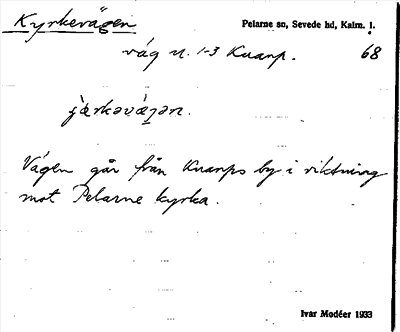 Kyrkevägen
Pelarne sn, Sevede hd, Kalm. l.
väg n. 1-3 Kuanp. 68
Vägen går från Kuanps by i riktning
mot Pelarne kyrka.
Ivar Modéer 1933